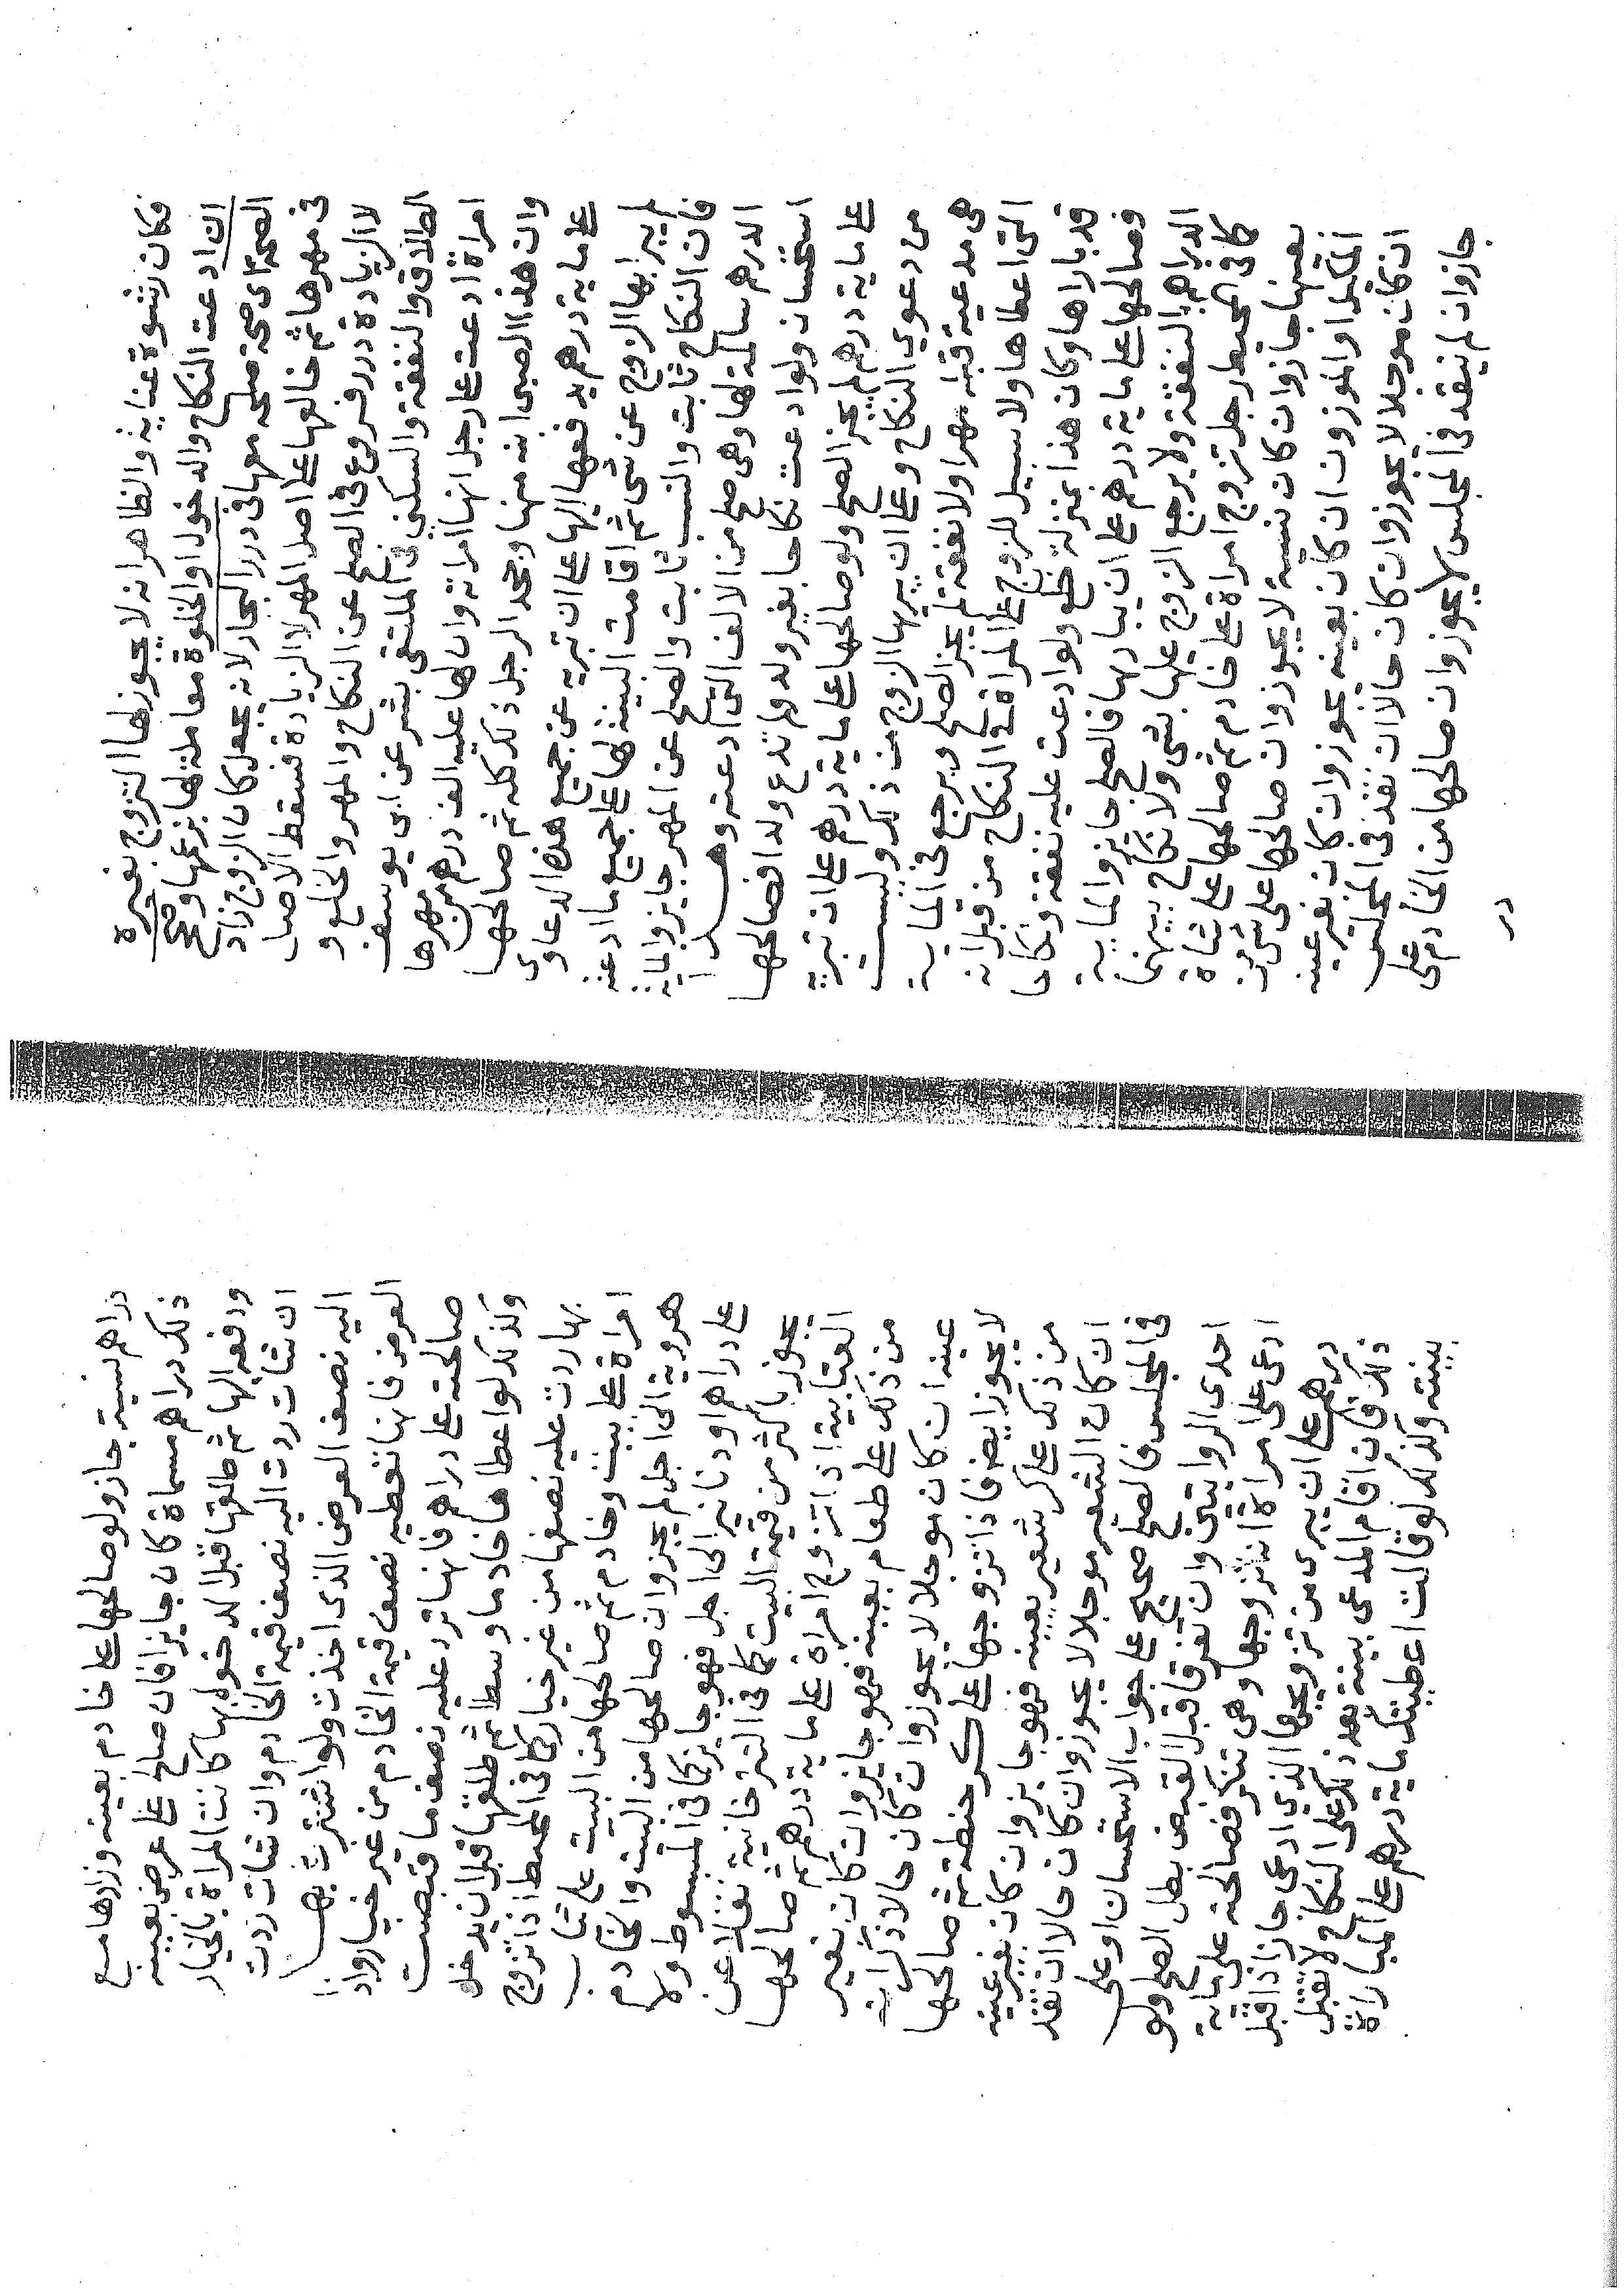 فكان رشوة عناية والظاهر انه لا يجوز لها التزوج بغيره
ان ادعت النكاح والدخول او الخلوة معاملة لها بزعمها وصح
الصحة اى صحة صلحه معها فى درر البحار لانه يجعل كان الزوج زاد
فى مهرها ثم خالعها على اصل المهر لا الزيادة فسقط الاصل
لا الزيادة درر فروع فى الصلح عن النكاح والمهر والخلع و
الطلاق والنفقة والسكنى فى المنتقى بشر عن ابى يوسف
امراة ادعت على رجل انها امراته وان لها عليه الف درهم من مهرها
وان هذا الصبى ابنه منها وجحد الرجل ذلك كله ثم صالحها
على ماية درهم يدفعها اليها على ان تبريه عن جميع هذه الدعاوى
لم يبرا بها الزوج عن شى ثم اقامت البينة لها على جميع ما ادعته
فان النكاح ثابت والنسب ثابت والصلح عن المهر جايز والماية
الدرهم سالمة لها وهى صلح من الالف التى ادعته وهذا
استحسان ولو ادعت نكاحا بغير ولد ولم تدع ولدا فصالحها
على ماية درهم لم يجز الصلح ولو صالحها على ماية درهم على ان تبريه
من دعوى النكاح وعلى ان يبريها الزوج من ذلك وليست
هى مدعية قبله مهرا ولا نفقة لم يجز الصلح ويرجع فى الماية
التى اعطاها ولا سبيل للزوج على المراة فى النكاح من قبل انه
قد باراها وكان هذا بمنزلة خلع ولو ادعت عليه نفقه ونكاحا
وصالحها على ماية درهم على ان يباريها فالصلح جايز والماية
الدراهم بالنفقة ولا يرجع الزوج عليها بشى ولا نكاح بينهما
كما فى المحيط رجل تزوج امراة على خادم ثم صالحها على شاة
بعينها جاز وان كان نسية لا يجوز وان صالحها على شى من
المكيل او الموزون ان كان بعينه يجوز وان كان بغير عينه
ان كان موجلا لا يجوز وان كان حالا ان نقد فى المجلس
جاز وان لم ينقد فى المجلس لا يجوز وان صالحها من الخادم على
در
دراهم نسية جاز ولو صالحها على خادم بعينه وزادها مع
ذلك دراهم مسماة كان جايزا فان صالح على عرض بعينه
ودفعه اليها ثم طلقها قبل الدخول بها كانت المراة بالخيار
ان شات ردت اليه نصف قيمة الخادم وان شات ردت
اليه نصف العرض الذى اخذت ولو اشترت بها
العرض فانها تعطيه نصف قيمة الخادم من غير خيار واذا
صالحته على دراهم فانها ترد عليه نصف ما قبضت
وكذلك لو اعطاها خادما وسطا ثم طلقها قبل ان يدخل
بها ردت عليه نصفها من غير خيار كما فى المحيط اذا تزوج
امراة على بيت وخادم ثم صالحها من البيت على ثياب
هروية الى اجل لم يجز وان صالحها من البيت والخادم
على دراهم او دنانير الى اجل فهو جايز كما فى المبسوط ولا
يجوز باكثر من قيمة البيت كما فى التترخانية نقلا عن
العتابية اذا تزوج امراة على ماية درهم ثم صالحها
من ذلك على طعام بعينه فهو جايز وان كان بغير
عينه ان كان موجلا لا يجوز وان كان حالا ذكر انه
لا يجوز ايضا فاذا تزوجها على كر حنطة ثم صالحها
من ذلك على كر شعير بعينه فهو جايز وان كان بغير عينه
ان كان الشعير موجلا لا يجوز وان كان حالا ان نقد
فى المجلس فالصلح صحيح على جواب الاستحسان او على
احدى الروايتين وان تفرقا قبل القبض بطل الصلح ولو
ادعى على امراة انه تزوجها وهى تنكر فصالحته على ماية
درهم على ان يبرى من تزويجها الذى ادعى جاز اذا قبل
ذلك فان اقام المدعى بينة بعد ذلك على النكاح لا تقبل
بينته وكذلك لو قالت اعطيتك ماية درهم على المباراة